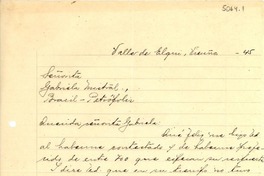 5064.1
Valle de Elqui, Vicuña -45
Señorita
Gabriela Mistral.,
Brasil - Petrópolis
Querida señorita Gabriela
Qué feliz me hizo Ud
al haberme contestado y de haberme
de entre los que esperan su respuesta
Y dice Ud. que en su triunfo no tuvo